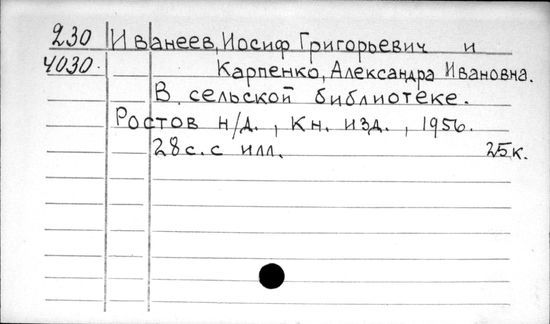 230 Иванеев, Иосиф Григорьевич и
4030. Карпенко, Александра Ивановна.
В сельской библиотеке.
Ростов н/д., Кн. изд., 1956.
28с. с илл. 25к.